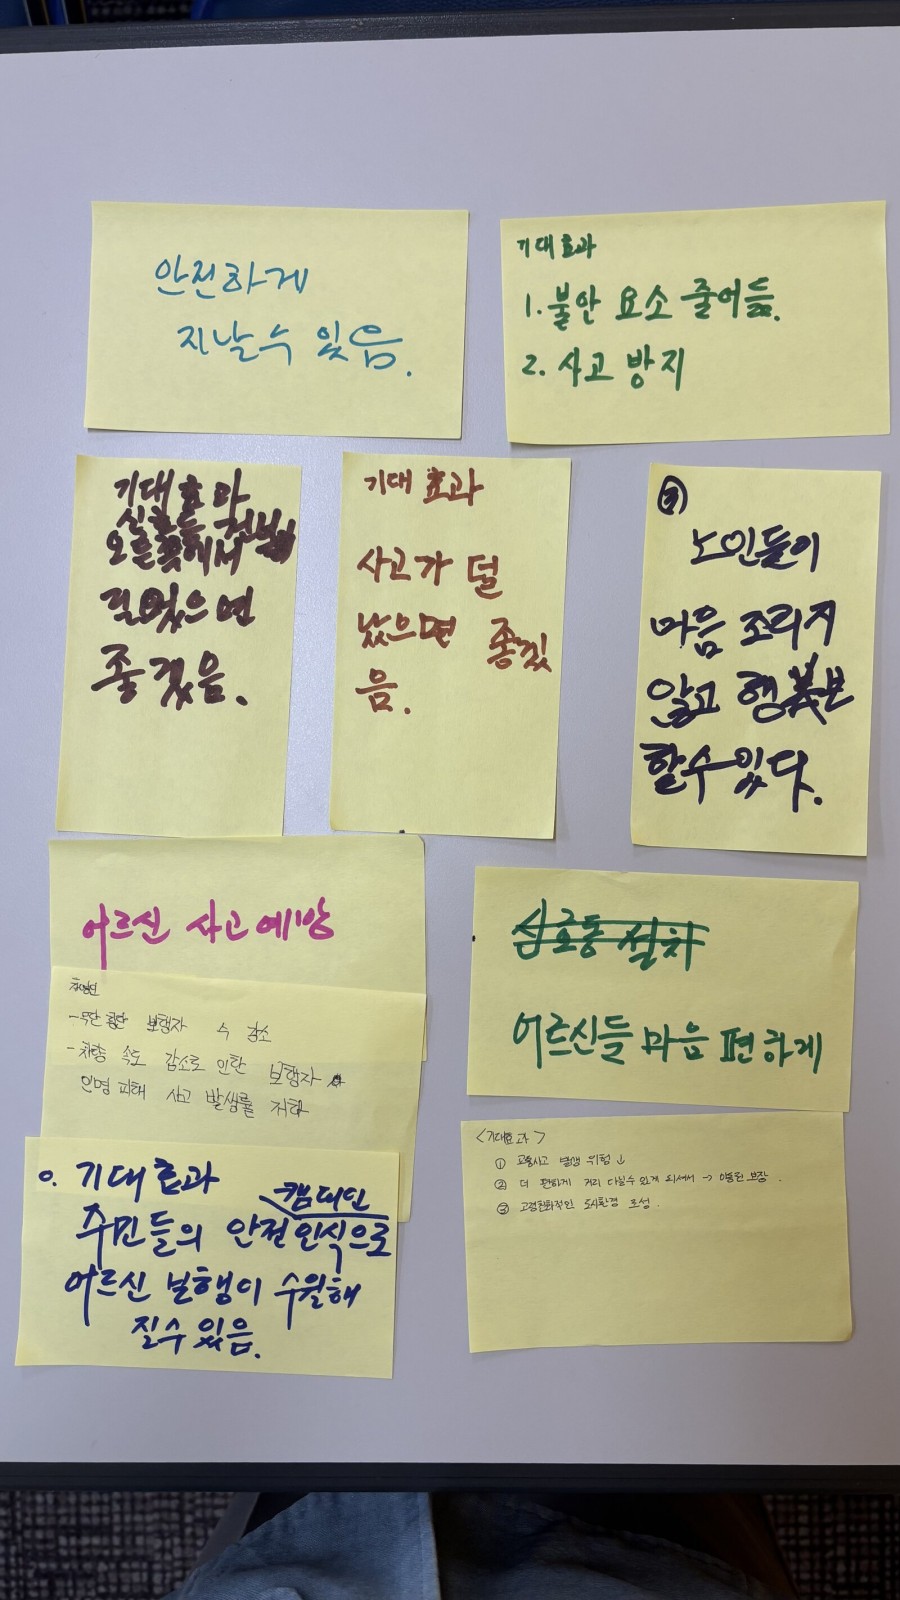 안전하게
지날수 있음.
기대효과
1. 불안 요소 줄어듦.
2. 사고 방지
기대효과
오른쪽에서
좋겠음.
기대 효과
사고가 덜
났으면 좋겠
음.
노인들이
마음 조리지
않고 행복
할수있다.
어르신 사고예방
- 무단 횡단 보행자 수 감소
- 차량 속도 감소로 인한 보행자
인명피해 사고 발생률 저하
0. 기대효과
캠페인
주민들의 안전인식으로
어르신 보행이 수월해
질수 있음.
신호등 설치
어르신들 마음 편하게
<기대효과>
① 교통사고 발생 위험↓
② 더 편하게 거리 다닐수 있게 되셔서 → 이동권 보장.
③ 고령친화적인 도시환경 조성.